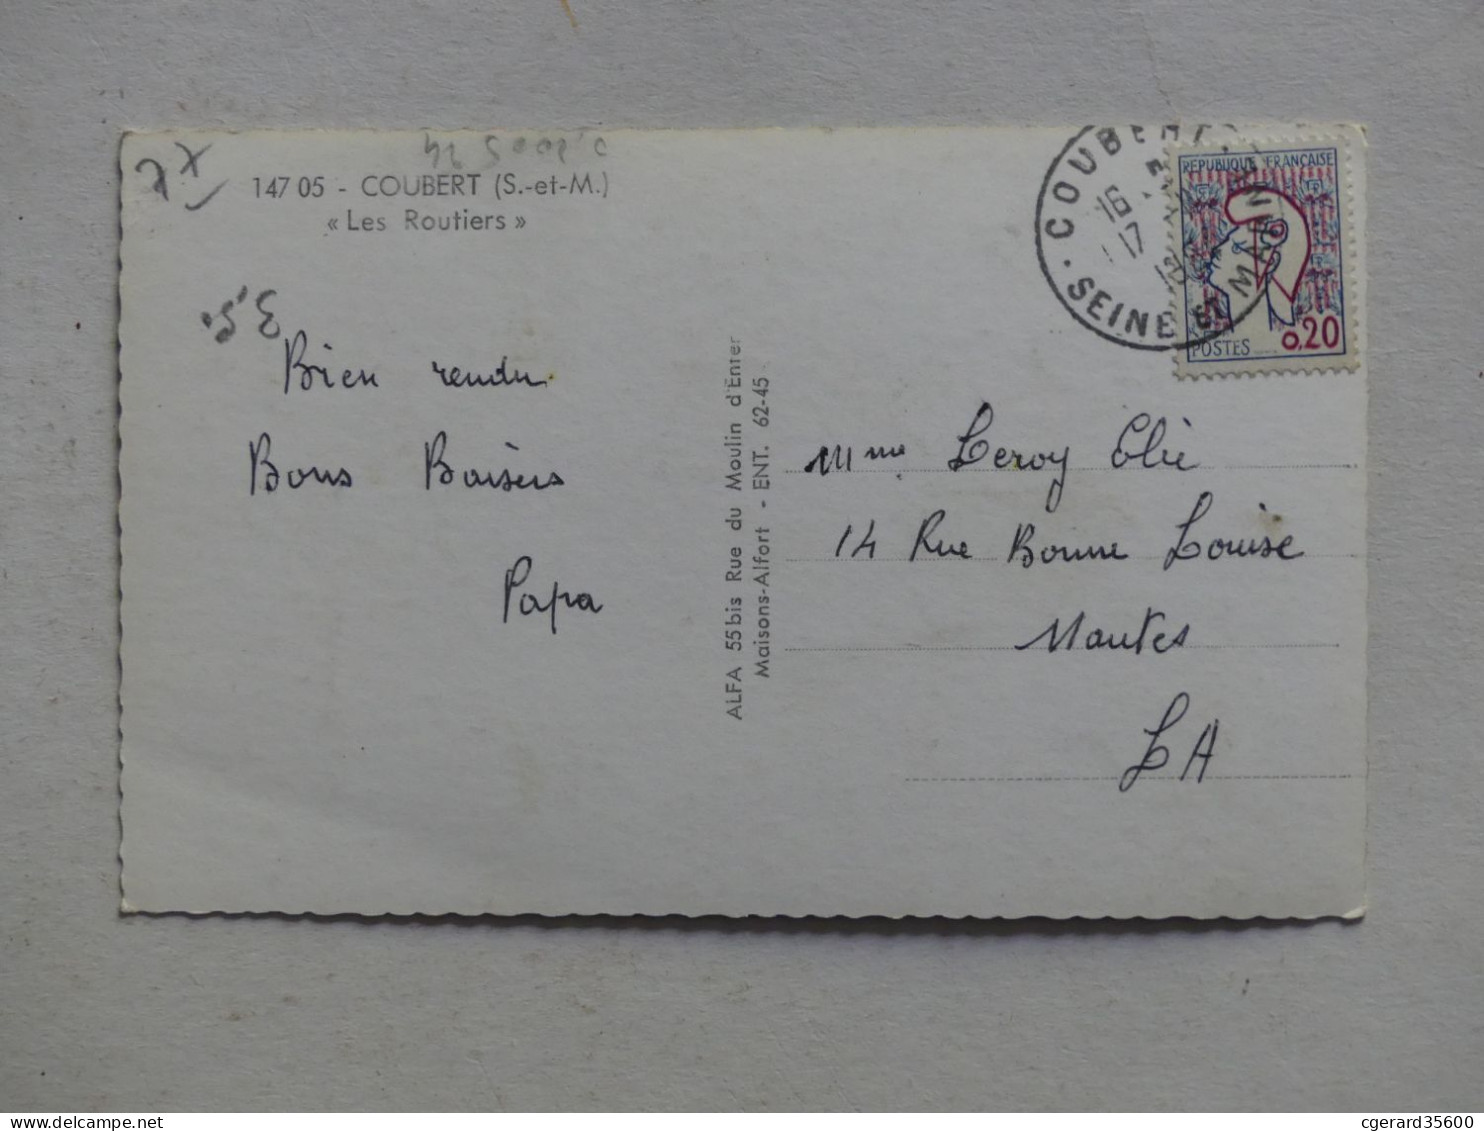 77
147 05 - COUBERT (S.-et-M.)
« Les Routiers »
Bien rendu
Bons Baisers
Papa
ALFA 55 bis Rue du Moulin d'Enfer
Maisons-Alfort - ENT. 62-45
COUBERT
16
17
SEINE ET MARNE
REPUBLIQUE FRANCAISE
POSTES 0,20
Mme Leroy Elie
14 Rue Bonne Louise
Nantes
LA
www.delcampe.net
cgerard35600